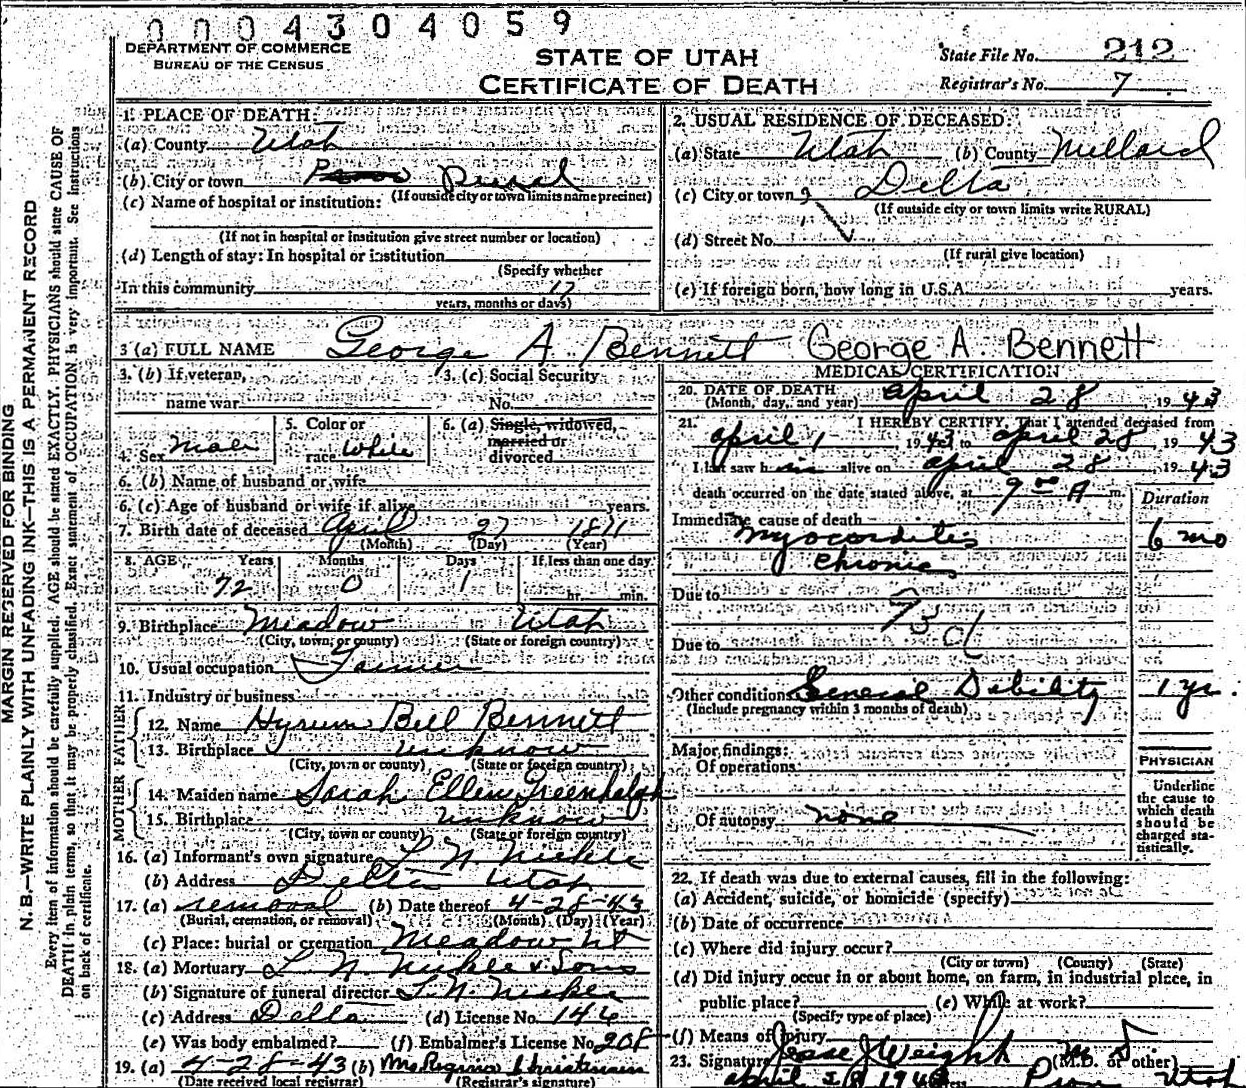 0004304059
DEPARTMENT OF COMMERCE
BUREAU OF THE CENSUS
STATE OF UTAH
CERTIFICATE OF DEATH
State File No. 212
Registrar's No. 7
MARGIN RESERVED FOR BINDING
N. B.—WRITE PLAINLY WITH UNFADING INK—THIS IS A PERMANENT RECORD
Every item of information should be carefully supplied. AGE should be stated EXACTLY. PHYSICIANS should state CAUSE OF
DEATH in plain terms, so that it may be properly classified. Exact statement of OCCUPATION is very important. See Instructions
on back of certificate.
1. PLACE OF DEATH:
(a) County Utah
(b) City or town Provo Rural
(If outside city or town limits name precinct)
(c) Name of hospital or institution:
(If not in hospital or institution give street number or location)
(d) Length of stay: In hospital or institution
(Specify whether
In this community 17
years, months or days)
2. USUAL RESIDENCE OF DECEASED
(a) State Utah (b) County Millard
(c) City or town Delta
(If outside city or town limits write RURAL)
(d) Street No.
(If rural give location)
(e) If foreign born, how long in U.S.A. years.
3 (a) FULL NAME George A. Bennett George A. Bennett
3. (b) If veteran,
name war
3. (c) Social Security
No.
4. Sex Male
5. Color or
race White
6. (a) Single, widowed,
married or
divorced
6. (b) Name of husband or wife
6. (c) Age of husband or wife if alive years.
7. Birth date of deceased April 27 1871
(Month) (Day) (Year)
8. AGE Years Months Days If less than one day
72 0 1 hr. min.
9. Birthplace Meadow Utah
(City, town, or county) (State or foreign country)
10. Usual occupation Farmer
11. Industry or business
FATHER
12. Name Hyrum Bell Bennett
13. Birthplace unknow
(City, town or county) (State or foreign country)
MOTHER
14. Maiden name Sarah Ellen Greenhalgh
15. Birthplace unknow
(City, town or county) (State or foreign country)
16. (a) Informant's own signature L N Nickle
(b) Address Delta Utah
17. (a) removal (b) Date thereof 4-28-43
(Burial, cremation, or removal) (Month) (Day) (Year)
(c) Place: burial or cremation Meadow Ut
18. (a) Mortuary L N Nickle & Sons
(b) Signature of funeral director L. N. Nickle
(c) Address Delta (d) License No. 146
(e) Was body embalmed? (f) Embalmer's License No. 208
19. (a) 4-28-43 (b) Mrs Regina Christensen
(Date received local registrar) (Registrar's signature)
MEDICAL CERTIFICATION
20. DATE OF DEATH April 28 1943
(Month, day, and year)
21. I HEREBY CERTIFY, That I attended deceased from
April 1 1943 to April 28 1943
I last saw him alive on April 28, 1943
death occurred on the date stated above, at 9 00 A m.
Duration
Immediate cause of death
Myocarditis 6 mo
Chronic
Due to
93 d
Due to
Other conditions General Debility 1 yr.
(Include pregnancy within 3 months of death)
Major findings:
Of operations
Of autopsy none
PHYSICIAN
Underline
the cause to
which death
should be
charged sta-
tistically.
22. If death was due to external causes, fill in the following:
(a) Accident, suicide, or homicide (specify)
(b) Date of occurrence
(c) Where did injury occur?
(City or town) (County) (State)
(d) Did injury occur in or about home, on farm, in industrial place, in
public place? (e) While at work?
(Specify type of place)
(f) Means of injury
23. Signature Jesse J Weight M D
(M.D. or other)
April 28 1943 Provo Utah